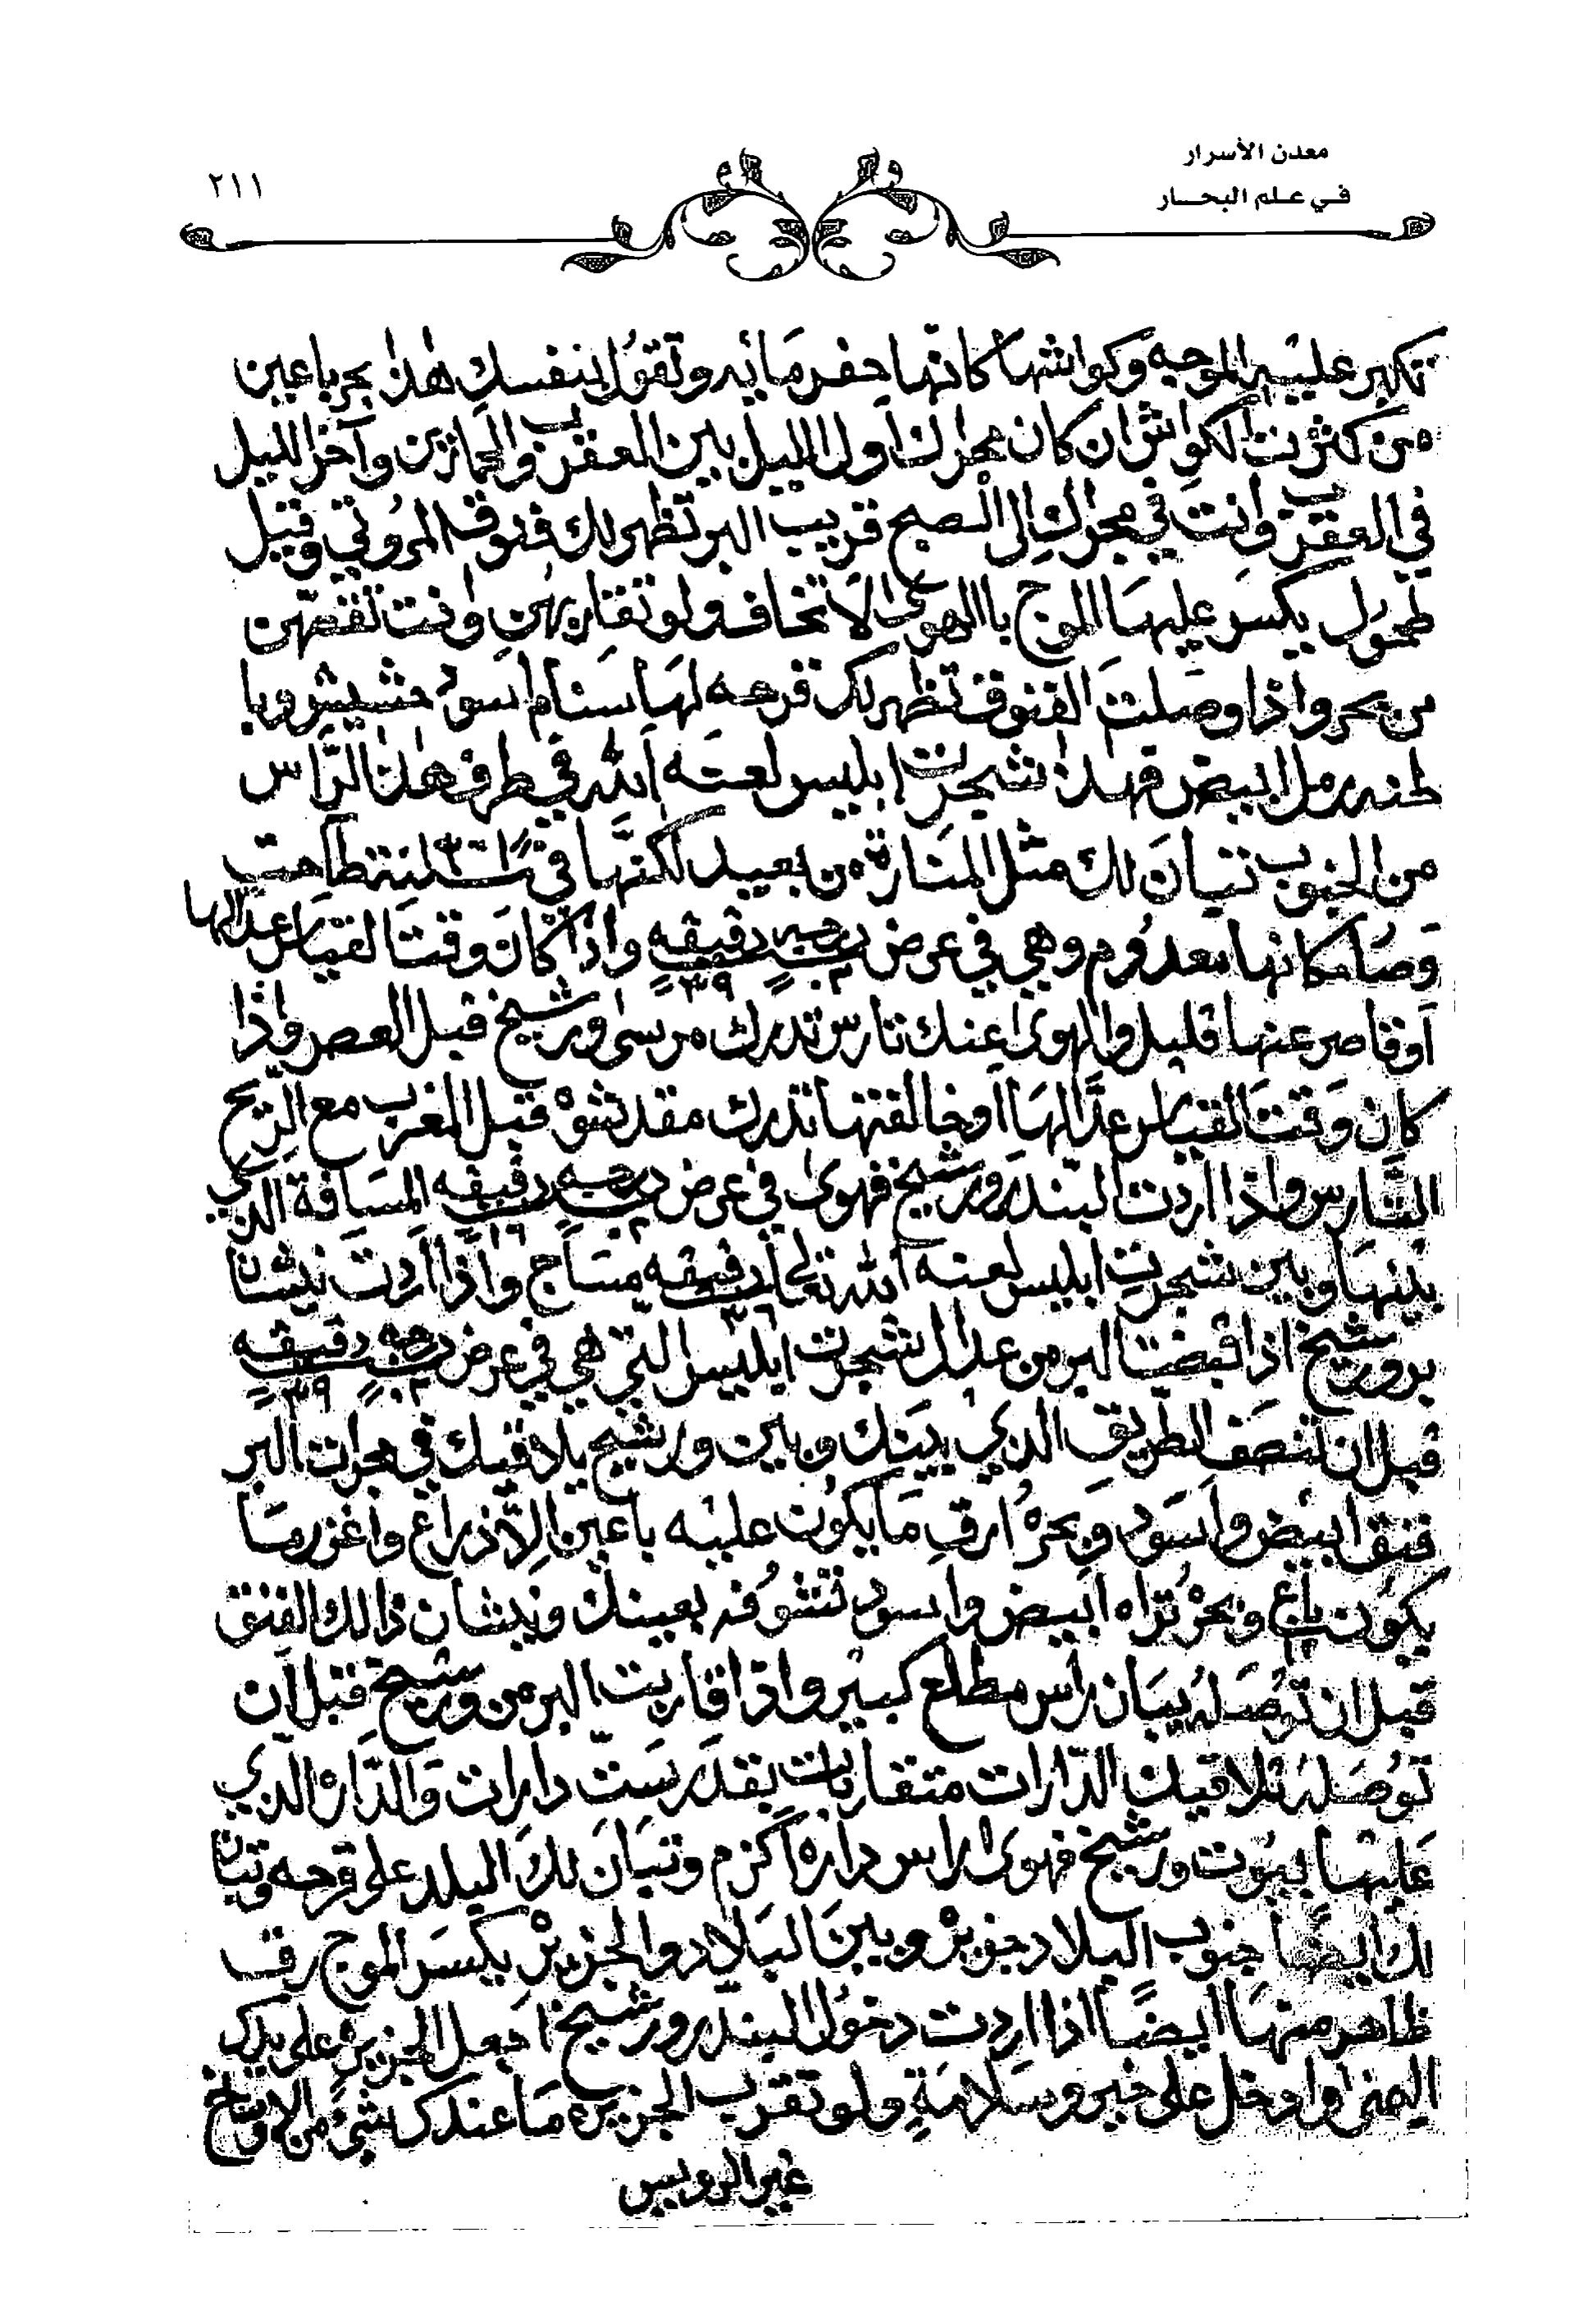 معدن الأسرار
في علم البحار
٢١١
تكبر عليه الموجه وكواشها كانها حفر مائيه وتقول بنفسك هذا بحر باعين
من كثرت الكواش ان كان مجراك اول الليل بين العقرب والحمارين وآخر الليل
في العقرب وانت في مجراك الى الصبح قريب البر تظهر لك فنوق المروتي وقيل
طحول يكسر عليها الموج باالهوى لا تخافه ولو تقاربهن وانت تفصهن
من بحر واذا وصلت الفنوق تظهر لك قرحه لها سنام اسود حشيش وبا
طنه رمل ابيض فهذا شجرت ابليس لعنه الله في طرف هذا الرأس
من الجنوب تبان لك مثل المنارة من بعيد لكنها في طاحت
وصار كانها معدوم وهي في عرض درجه ٢٠ دقيقه ٣٩ واذا كان وقت القياس عدالها
أو قاصر عنها قليل والهوى عنك تارس تدرك مرسى ورشيخ قبل العصر واذا
كان وقت القياس عدالها او خالفتها تدرك مقدشوه قبل المغرب مع الريح
التارس واذا اردت البندر ورشيخ فهوى في عرض درجه ٢٠ دقيقه ١٦ المسافة الذي
بينها وبين شجرت ابليس لعنه الله تعالى دقيقه ٣٦ مساج واذا اردت نيشان
بر ورشيخ اذا قبضت البر من عدال شجرت ابليس التي هي في عرض درجه ٢٠ دقيقه ٣٩
قبل ان تنصف الطريق الذي بينك وبين ورشيخ يلاقيك في مجرات البر
فنق ابيض واسود وبحره ارق ما يكون عليه باعين الا ذراع واغزر ما
يكون باع وبحره تراه ابيض واسود تشوفه بعينك ونيشان ذالك الفنق
قبل ان توصله يبان راس مطلع كبير واذا قاربت البر من ورشيخ قبل ان
توصله تلاقيك الدارات متقاربات بقدر ست دارات والداره الذي
عليها بيوت ورشيخ فهوى راس داره اكزم وتبان لك البلد على قرحه وتبان
لك ايضا جنوب البلاد جزيره وبين البلاد والجزيره يكسر الموج رق
ظاهر منها ايضا اذا اردت دخول البندر ورشيخ اجعل الجزيره على يدك
اليمنى وادخل على خير وسلامة ولو تقرب الجزيره ما عندك شيء من الاوساخ
غير الرويس